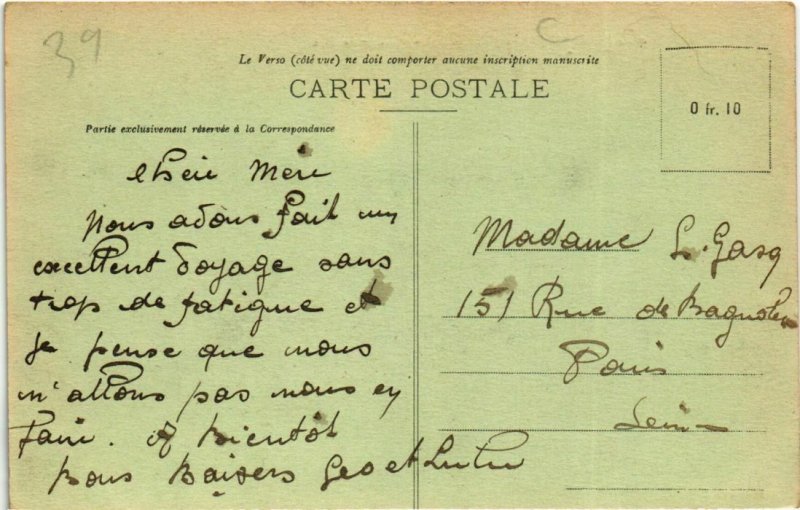 39
C
Le Verso (côté vue) ne doit comporter aucune inscription manuscrite
CARTE POSTALE
0 fr. 10
Partie exclusivement réservée à la Correspondance
Chère Mère
Nous avons fait un
excellent voyage sans
trop de fatigue et
je pense que nous
n'allons pas nous en
faire. A bientôt
Bons Baisers Geo et Lulu
Madame L. Gasq
151 Rue de Bagnolet
Paris
Seine